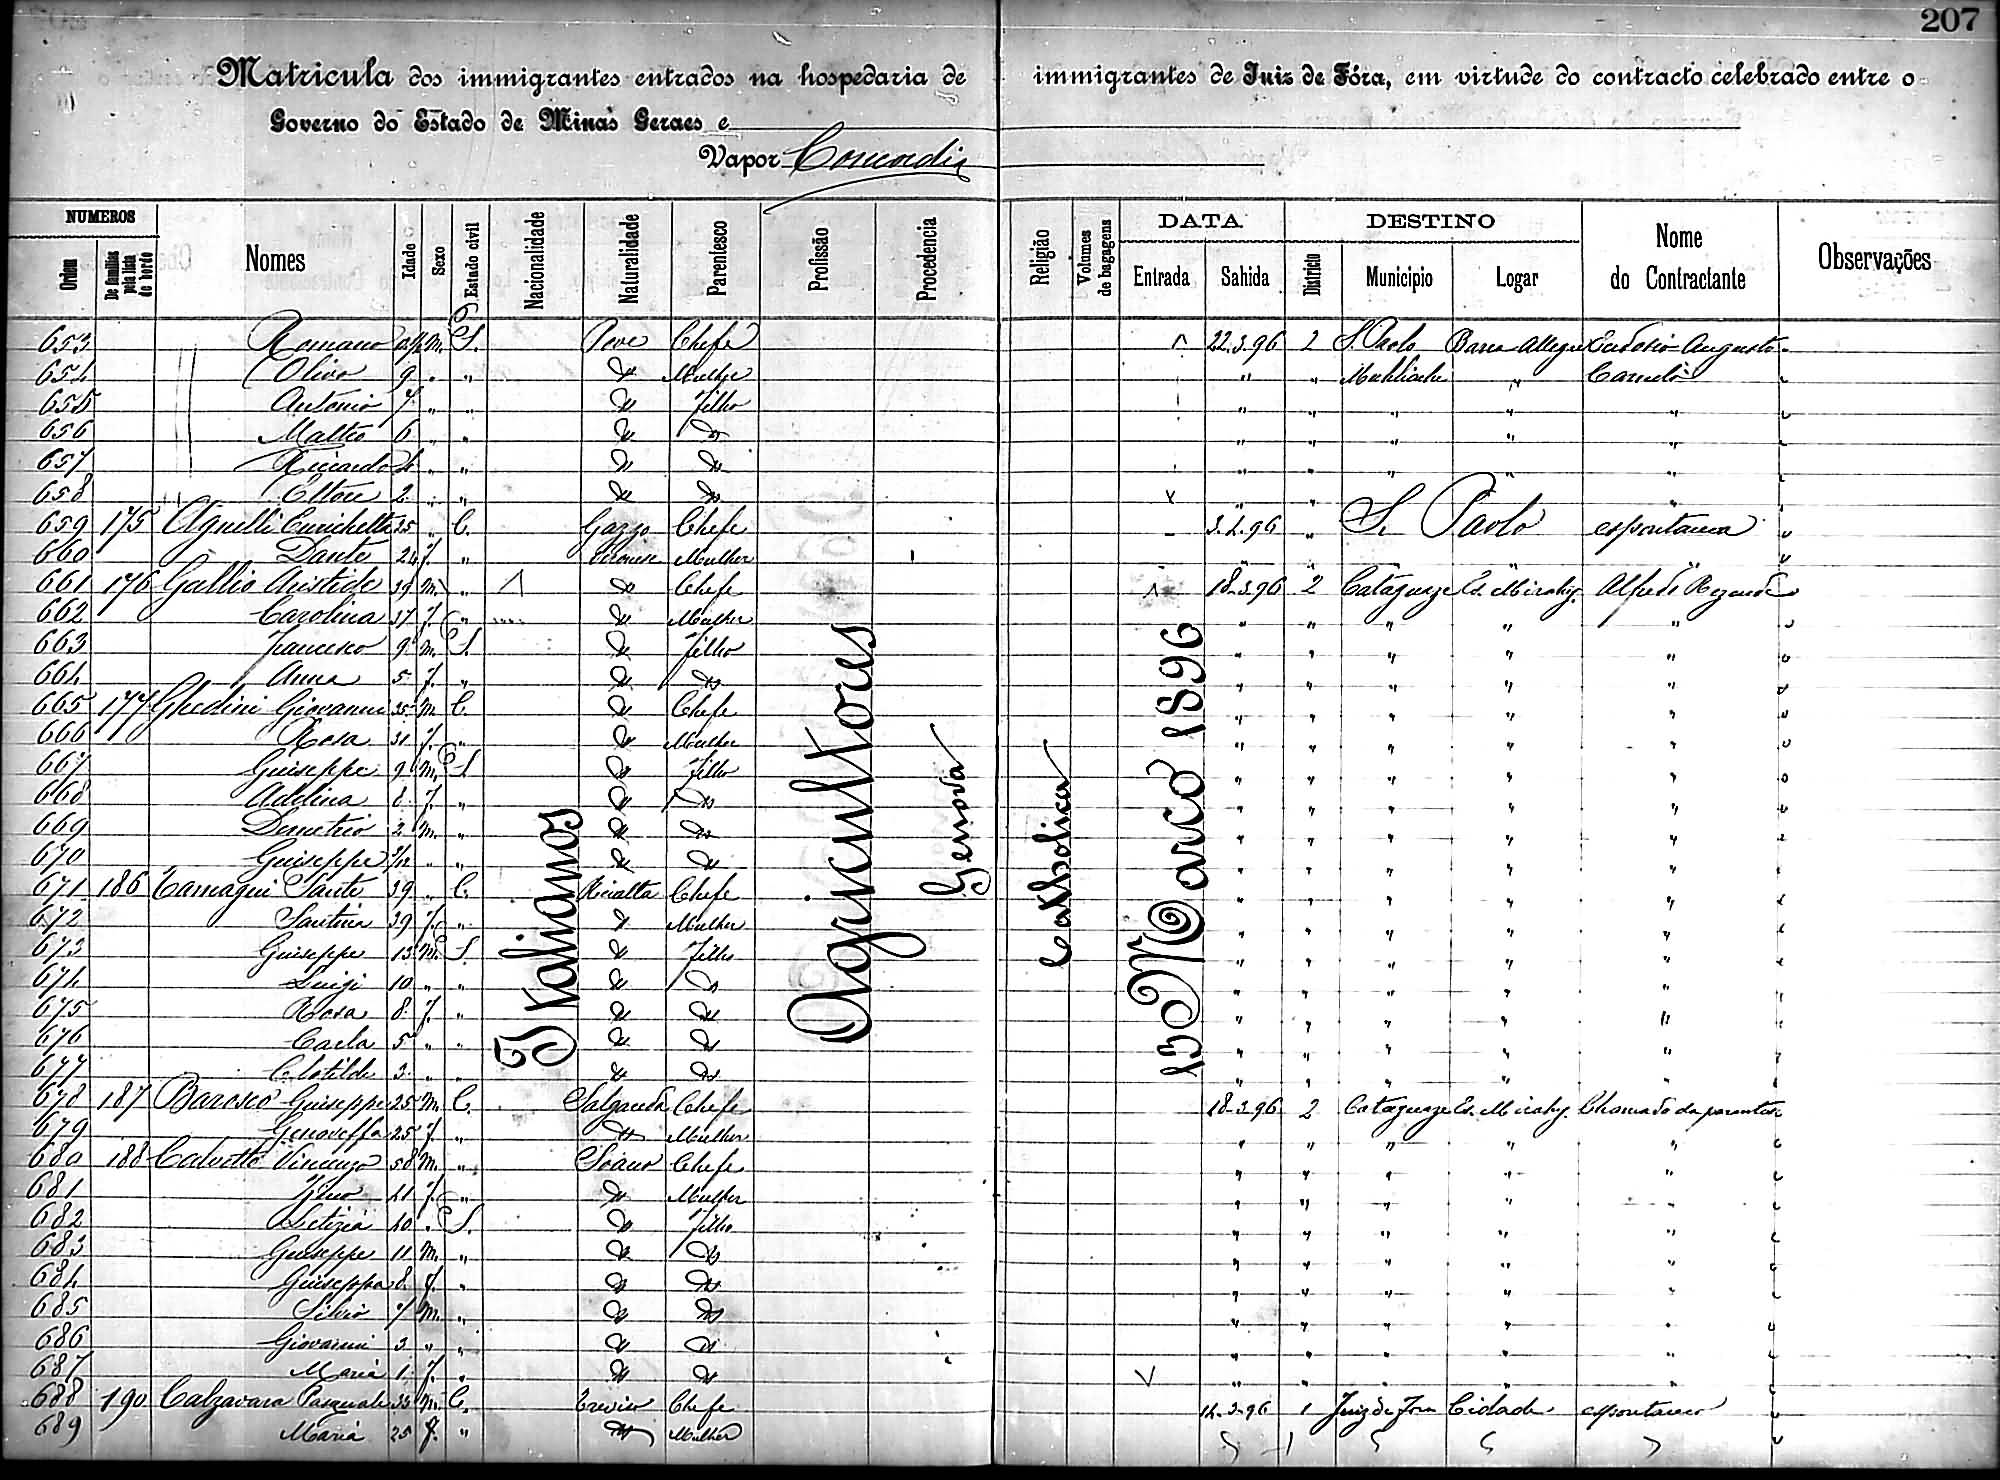 207
Matricula dos immigrantes entrados na hospedaria de immigrantes de Juiz de Fóra, em virtude do contracto celebrado entre o
Governo do Estado de Minas Geraes e
Vapor Concordia
NUMEROS DATA DESTINO
Ordem De familias pela lista de bordo Nomes Idade Sexo Estado civil Nacionalidade Naturalidade Parentesco Profissão Procedencia Religião Volumes de bagagens Entrada Sahida Districto Municipio Logar Nome do Contractante Observações
Italianos
Agricultores
Genova
Catholica
13 Março 1896
653 Romano m. S. Chefe 22.3.96 2 S. Paolo Barra Alegre Eudosio Augusto
654 Olivo 9 " " Mulher " " Muhliache "
655 Antonio 7 " " " Filho " " " " "
656 Matteo 6 " " " " " " " " "
657 Riccardo 4 " " " " " " " " "
658 Ettore 2 " " " " " " "
659 175 Agnelli Enrichetta 25 " C. Gazzo Chefe 3.2.96 " S. Paolo espontanea
660 Dante 24 f. " Veronese Mulher
661 176 Gallio Aristide 39 m. " " Chefe 18.3.96 2 Cataguaze Es. Mirahy. Alfredo Rezende
662 Carolina 37 f. " " Mulher " " " " "
663 Francesco 9 m. S. " Filho " " " " "
664 Anna 5 f. " " " " " " " "
665 177 Ghedini Giovanni 35 m. C. " Chefe " " " " "
666 Rosa 31 f. " " Mulher " " " " "
667 Guiseppe 9 m. S. " Filho " " " " "
668 Adelina 8 f. " " " " " " " "
669 Demetrio 2 m. " " " " " " " "
670 Guiseppe " " " " " " " " "
671 186 Tamagni Sante 39 " C. Rivalta Chefe " " " " "
672 Santina 39 f. " " Mulher " " " " "
673 Guiseppe 13 m. S. " Filho " " " " "
674 Luigi 10 " " " " " " " " "
675 Rosa 8 f. " " " " " " " "
676 Carla 5 " " " " " " " " "
677 Clotilde 3 " " " " " " " " "
678 187 Barosco Guiseppe 25 m. C. Salgareda Chefe 18.3.96 2 Cataguaze Es. Mirahy. Chamado da parentes
679 Genoveffa 25 f. " " Mulher " " " " "
680 188 Calvetto Vincenzo 58 m. " Chefe " " " " "
681 41 f. " " Mulher " " " " "
682 Letizia " S. " Filho " " " " "
683 Guiseppe 11 m. " " " " " " " "
684 Guiseppa 8 f. " " " " " " " "
685 Silvio 7 m. " " " " " " " "
686 Giovanni 3 " " " " " " " " "
687 Maria 1 f. " " " " " " " "
688 190 Calzavara Pasquale 33 m. C. Treviso Chefe 14.3.96 1 Juiz de Fora Cidade espontaneo
689 Maria 25 f. " " Mulher